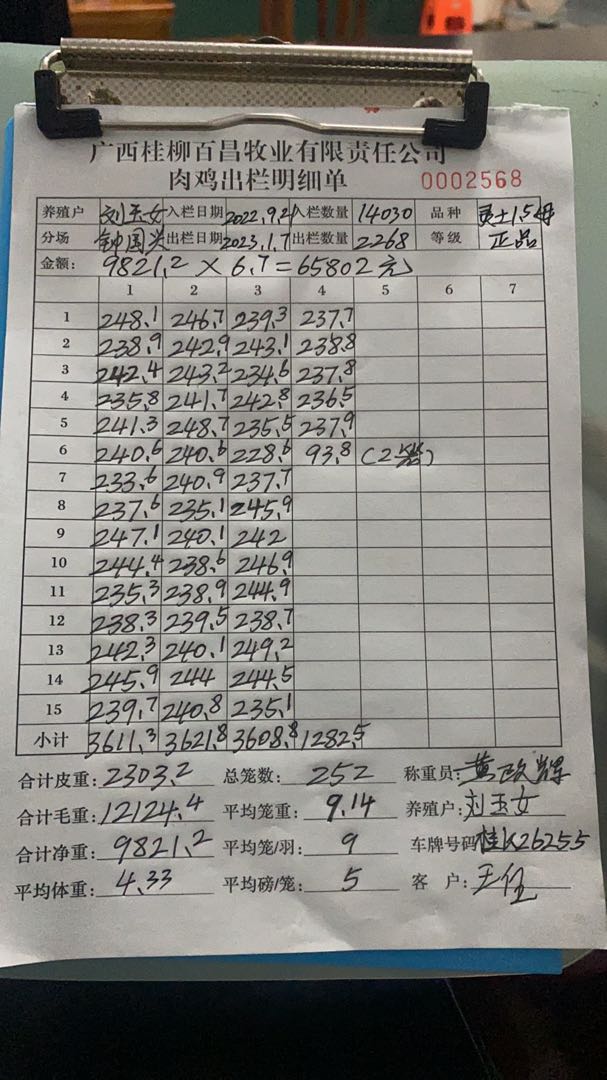 广西桂柳百昌牧业有限责任公司
肉鸡出栏明细单 0002568
养殖户 刘玉女 入栏日期 2022.9.21 入栏数量 14030 品种 灵土1.5母
分场 钟国兴 出栏日期 2023.1.7 出栏数量 2268 等级 正品
金额: 9821.2 × 6.7 = 65802元
1 2 3 4 5 6 7
1 248.1 246.7 239.3 237.7
2 238.9 242.9 243.1 238.8
3 242.4 243.2 234.6 237.8
4 235.8 241.7 242.8 236.5
5 241.3 248.7 235.5 237.9
6 240.6 240.6 228.6 93.8 (2笼)
7 233.6 240.9 237.7
8 237.6 235.1 245.9
9 247.1 240.1 242
10 244.4 238.6 246.9
11 235.3 238.9 244.9
12 238.3 239.5 238.7
13 242.3 240.1 249.2
14 245.9 244 244.5
15 239.7 240.8 235.1
小计 3611.3 3621.8 3608.8 1282.5
合计皮重: 2303.2 总笼数: 252 称重员: 黄
合计毛重: 12124.4 平均笼重: 9.14 养殖户: 刘玉女
合计净重: 9821.2 平均笼/羽: 9 车牌号码: 桂K26255
平均体重: 4.33 平均磅/笼: 5 客户: 王